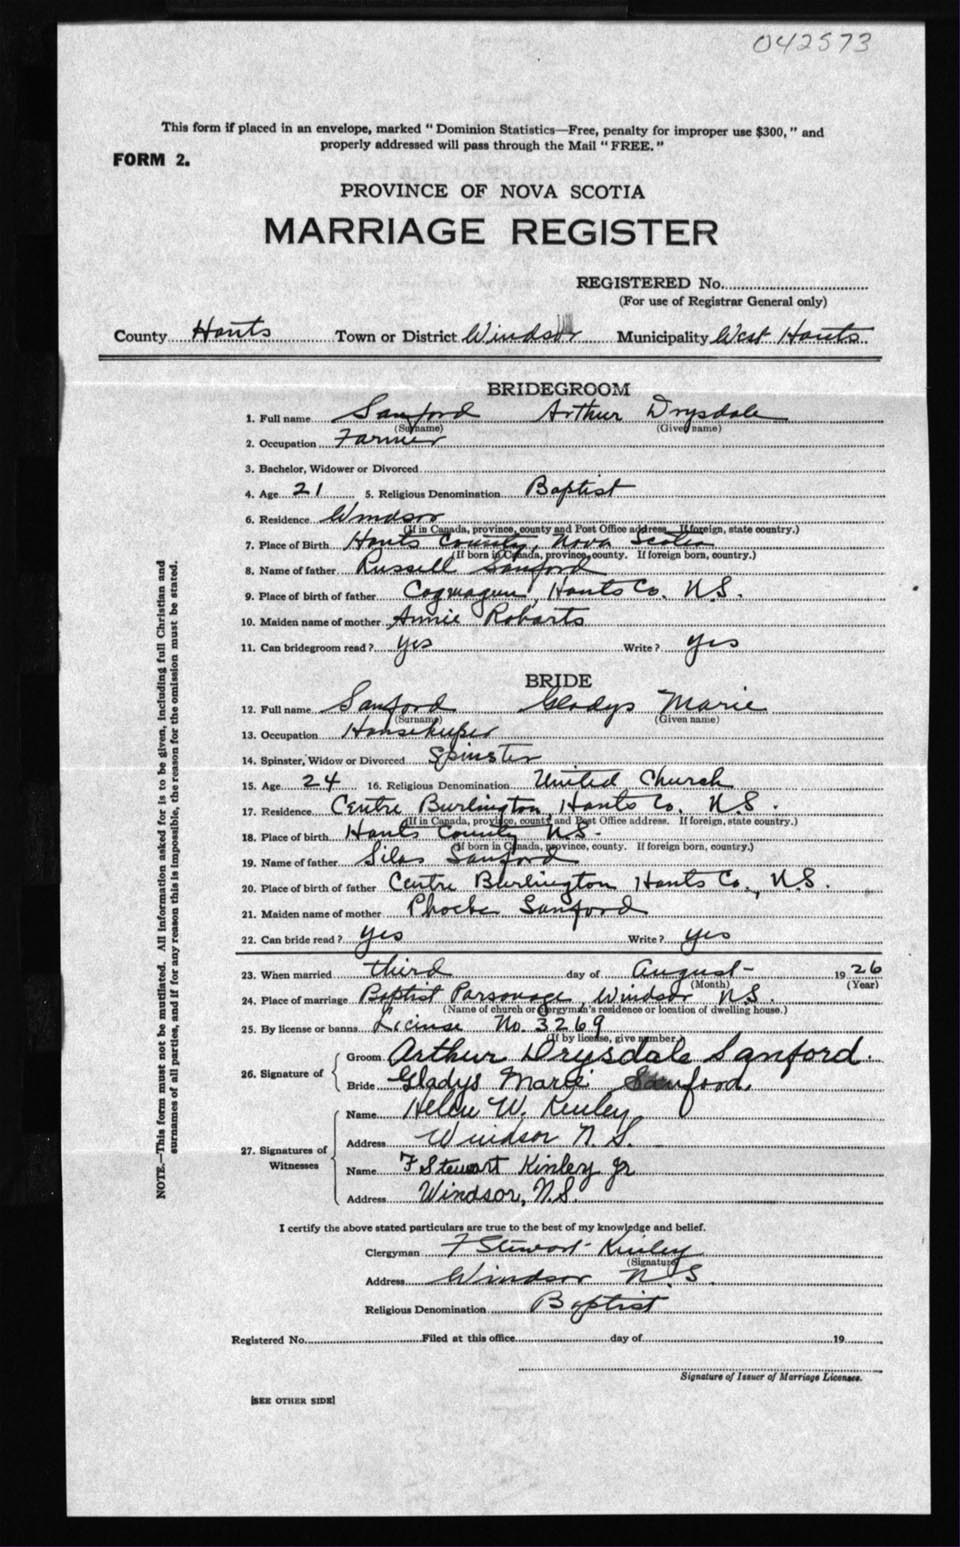 042573
This form if placed in an envelope, marked "Dominion Statistics—Free, penalty for improper use $300," and
properly addressed will pass through the Mail "FREE."
FORM 2.
PROVINCE OF NOVA SCOTIA
MARRIAGE REGISTER
REGISTERED No.
(For use of Registrar General only)
County Hants Town or District Windsor Municipality West Hants
BRIDEGROOM
1. Full name Sanford Arthur Drysdale
(Surname) (Given name)
2. Occupation Farmer
3. Bachelor, Widower or Divorced
4. Age 21 5. Religious Denomination Baptist
6. Residence Windsor
(If in Canada, province, county and Post Office address. If foreign, state country.)
7. Place of Birth Hants County, Nova Scotia
(If born in Canada, province, county. If foreign born, country.)
8. Name of father Russell Sanford
9. Place of birth of father Cogmagun, Hants Co. N.S.
10. Maiden name of mother Annie Robarts
11. Can bridegroom read? yes Write? yes
BRIDE
12. Full name Sanford Gladys Marie
(Surname) (Given name)
13. Occupation Housekeeper
14. Spinster, Widow or Divorced Spinster
15. Age 24 16. Religious Denomination United Church
17. Residence Centre Burlington, Hants Co. N.S.
(If in Canada, province, county and Post Office address. If foreign, state country.)
18. Place of birth Hants County N.S.
(If born in Canada, province, county. If foreign born, country.)
19. Name of father Silas Sanford
20. Place of birth of father Centre Burlington Hants Co., N.S.
21. Maiden name of mother Phoebe Sanford
22. Can bride read? yes Write? yes
23. When married third day of August 1926
(Month) (Year)
24. Place of marriage Baptist Parsonage, Windsor N.S.
(Name of church or clergyman's residence or location of dwelling house.)
25. By license or banns License No. 3269
(If by license, give number.)
26. Signature of
Groom Arthur Drysdale Sanford
Bride Gladys Marie Sanford
27. Signatures of Witnesses
Name Helen W. Kinley
Address Windsor N.S.
Name F Stewart Kinley Jr
Address Windsor, N.S.
I certify the above stated particulars are true to the best of my knowledge and belief.
Clergyman F Stewart Kinley
(Signature)
Address Windsor N.S.
Religious Denomination Baptist
Registered No. Filed at this office day of 19
Signature of Issuer of Marriage Licenses.
[SEE OTHER SIDE]
NOTE.—This form must not be mutilated. All information asked for is to be given, including full Christian and
surnames of all parties, and if for any reason this is impossible, the reason for the omission must be stated.